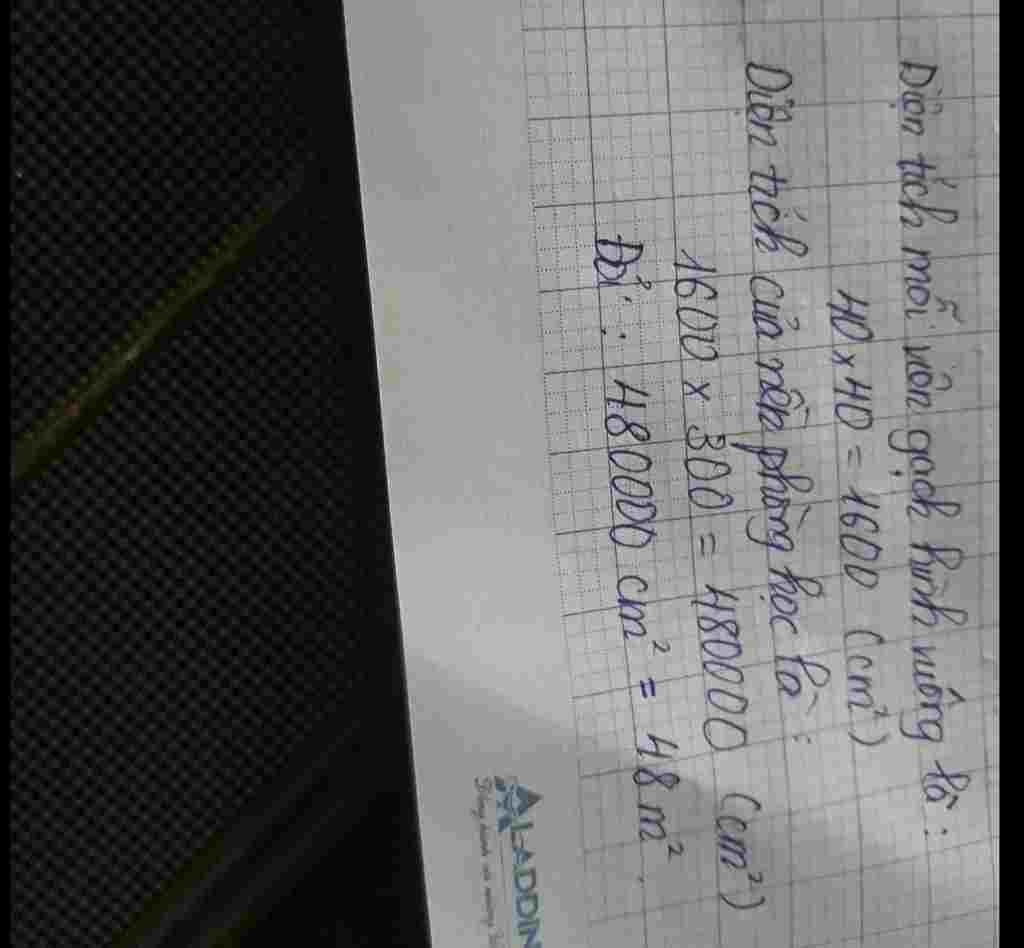 Diện tích mỗi viên gạch hình vuông là:
40 x 40 = 1600 (cm²)
Diện tích của nền phòng học là:
1600 x 300 = 480000 (cm²)
Đổi: 480000 cm² = 48 m².
ALADDIN